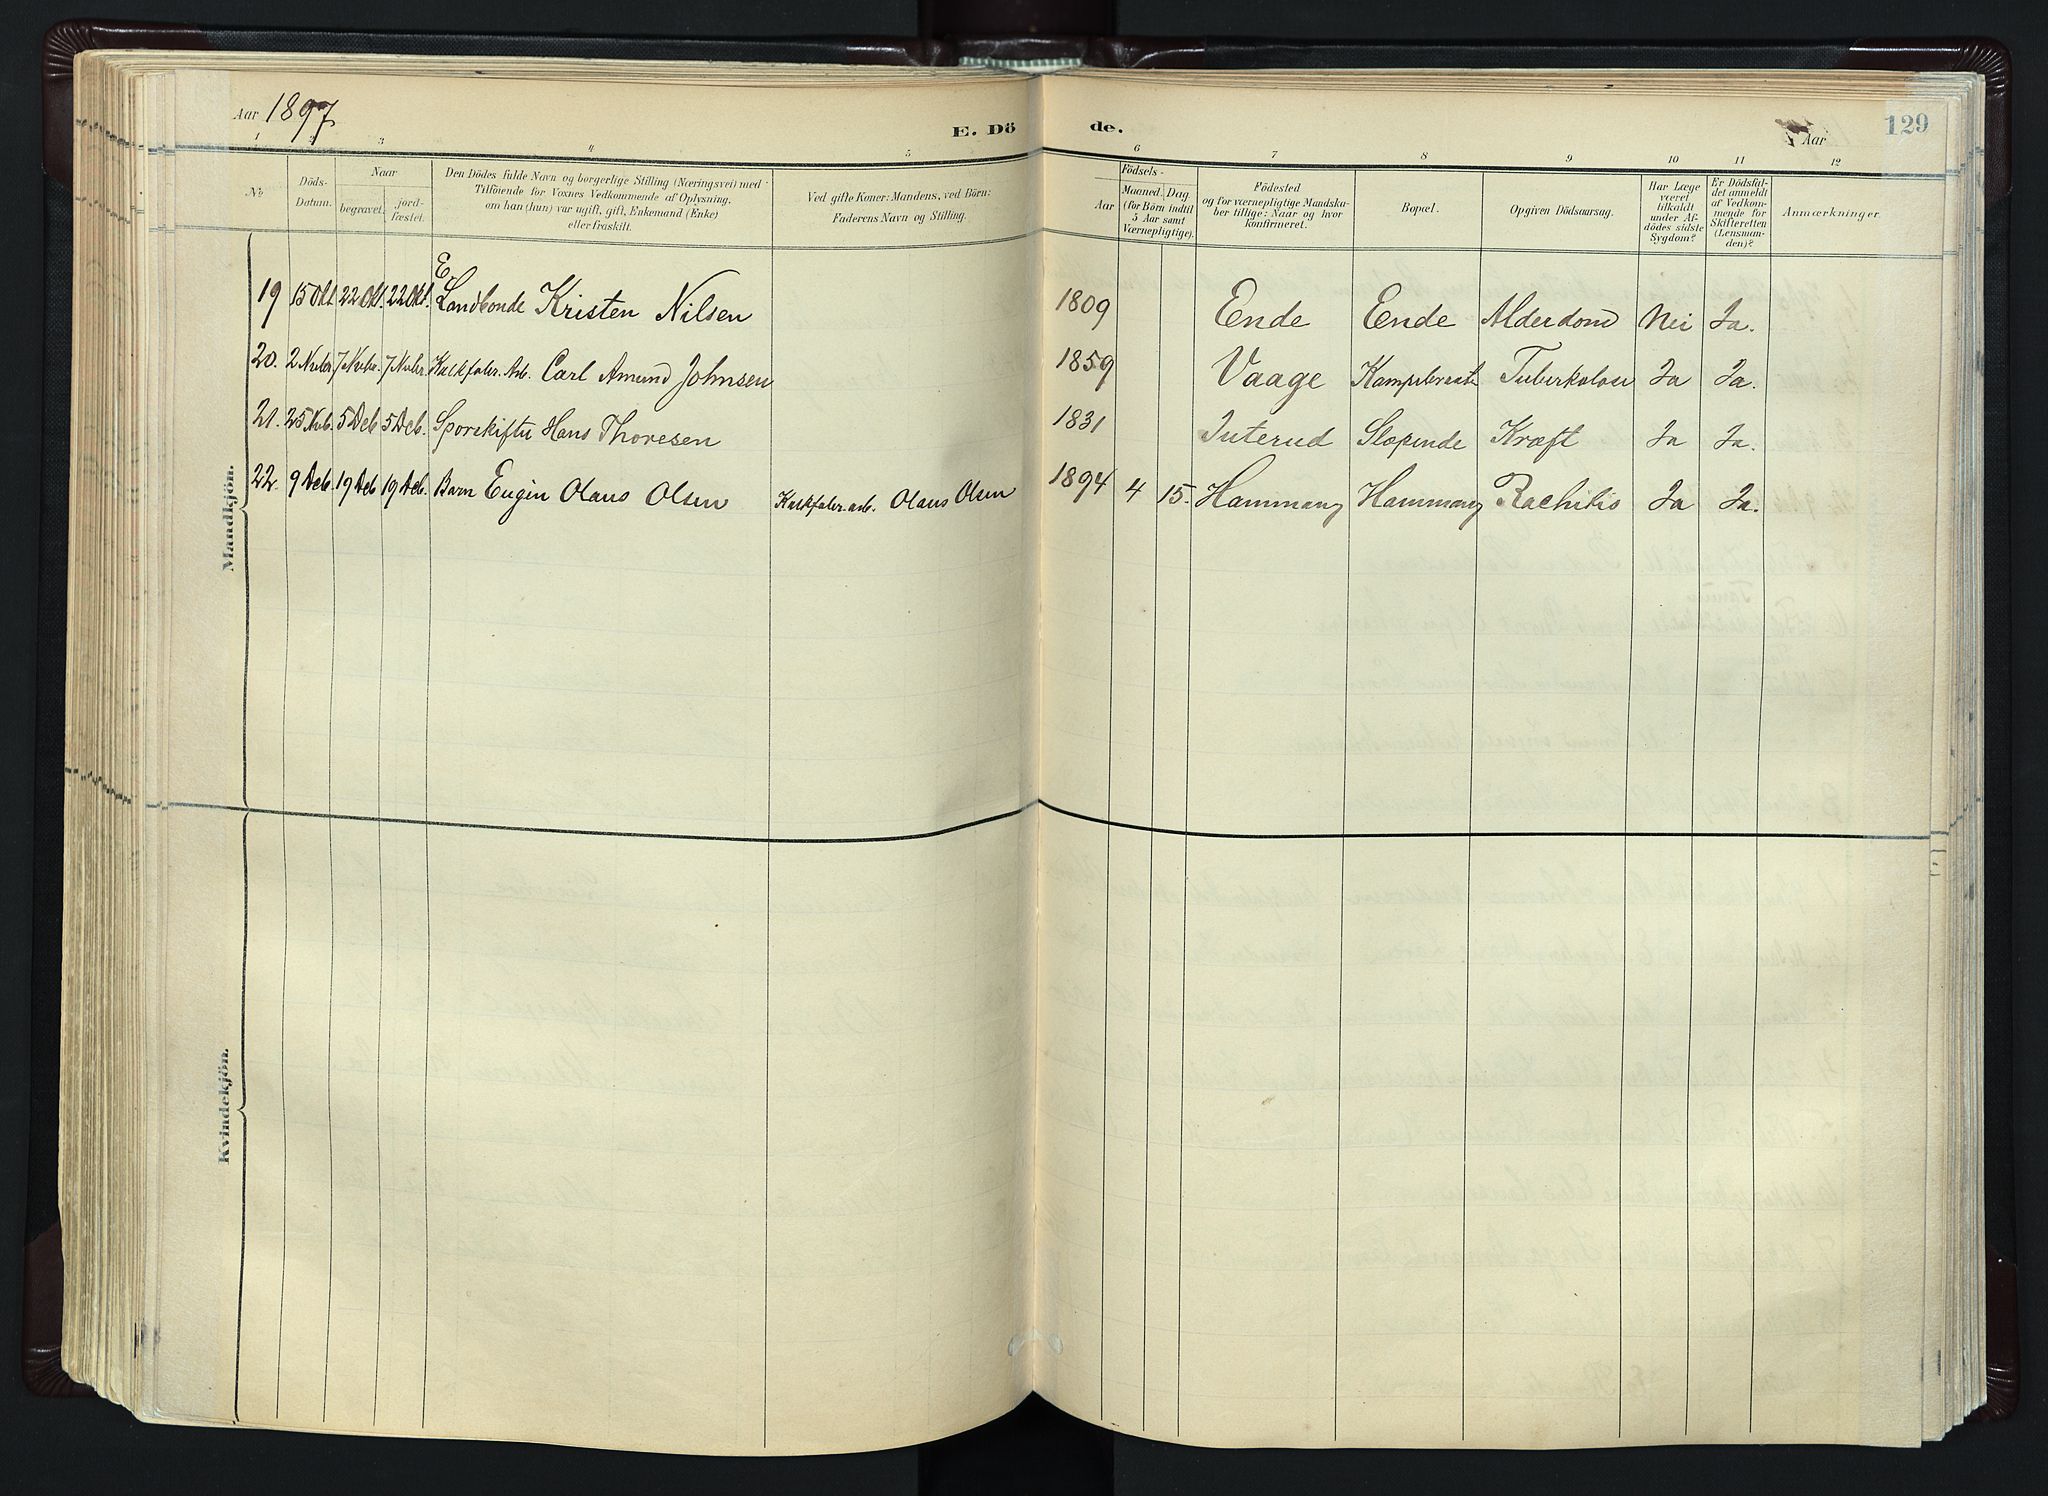 Aar 1897
E. Dö de.
Aar
129
1 2 3 4 5 6 7 8 9 10 11 12
No
Döds-
Datum.
Naar
begravet.
jord-
fæstet.
Den Dödes fulde Navn og borgerlige Stilling (Næringsvei) med
Tilföiende for Voxnes Vedkommende af Oplysning,
om han (hun) var ugift, gift, Enkemand (Enke)
eller fraskilt.
Ved gifte Koner: Mandens, ved Börn:
Faderens Navn og Stilling.
Födsels-
Aar
Maaned. Dag.
(for Börn indtil
5 Aar samt
Værnepligtige).
Födested
og for værnepligtige Mandska-
ber tillige: Naar og hvor
konfirmeret.
Bopæl.
Opgiven Dödsaarsag.
Har Læge
været
tilkaldt
under Af-
dödes sidste
Sygdom?
Er Dödsfal-
det anmeldt
af Vedkom-
mende for
Skifteretten
(Lensman-
den)?
Anmærkninger.
Mandkjön.
E.
19 15 Okt. 22 Okt. 22 Okt. Landbonde Kristen Nilsen 1809 Ende Ende Alderdom Nei Ja.
20. 2 Nvbr 7 Nvbr. 7 Nvbr. Kalkfabr. Arb. Carl Amund Johnsen 1859 Vaage Tuberkolose Ja Ja.
21. 25 Nvb. 5 Deb 5 Deb. Sporskifter Hans Thoresen 1831 Juterud Slepende Kræft Ja Ja.
22. 9 Deb. 19 Deb 19 Deb. Barn Eugin Olaus Olsen Kalkfabr. arb. Olaus Olsen 1894 4 15. Hammang Hammang Rachitis Ja Ja.
Kvindekjön.